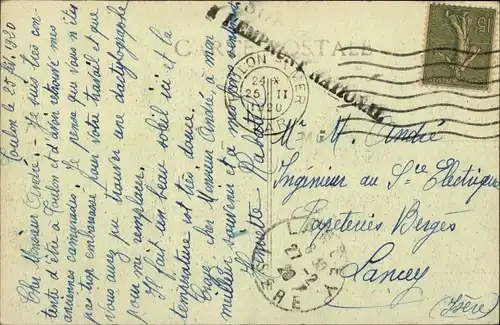 CARTE POSTALE
EMPRUNT NATIONAL
TOULON S MER
24
25 II
20
VAR
15
Toulon le 25 Fév. 1920
Cher Monsieur André. Je suis très con-
tente d'être à Toulon et d'avoir retrouvé mes
anciennes camarades. Je pense que vous n'êtes
pas trop embarrassé pour votre travail et que
vous avez pu trouver une dactylographe
pour me remplacer.
Il fait un beau soleil ici et la
température est très douce.
Croyez cher Monsieur André à mon
meilleur souvenir et à mes bons sentiments
Henriette
Mr H. André
Ingénieur au Sce Electrique
Papeteries Bergès
Lancey
(Isère)
LANCEY
27-2
20
ISERE